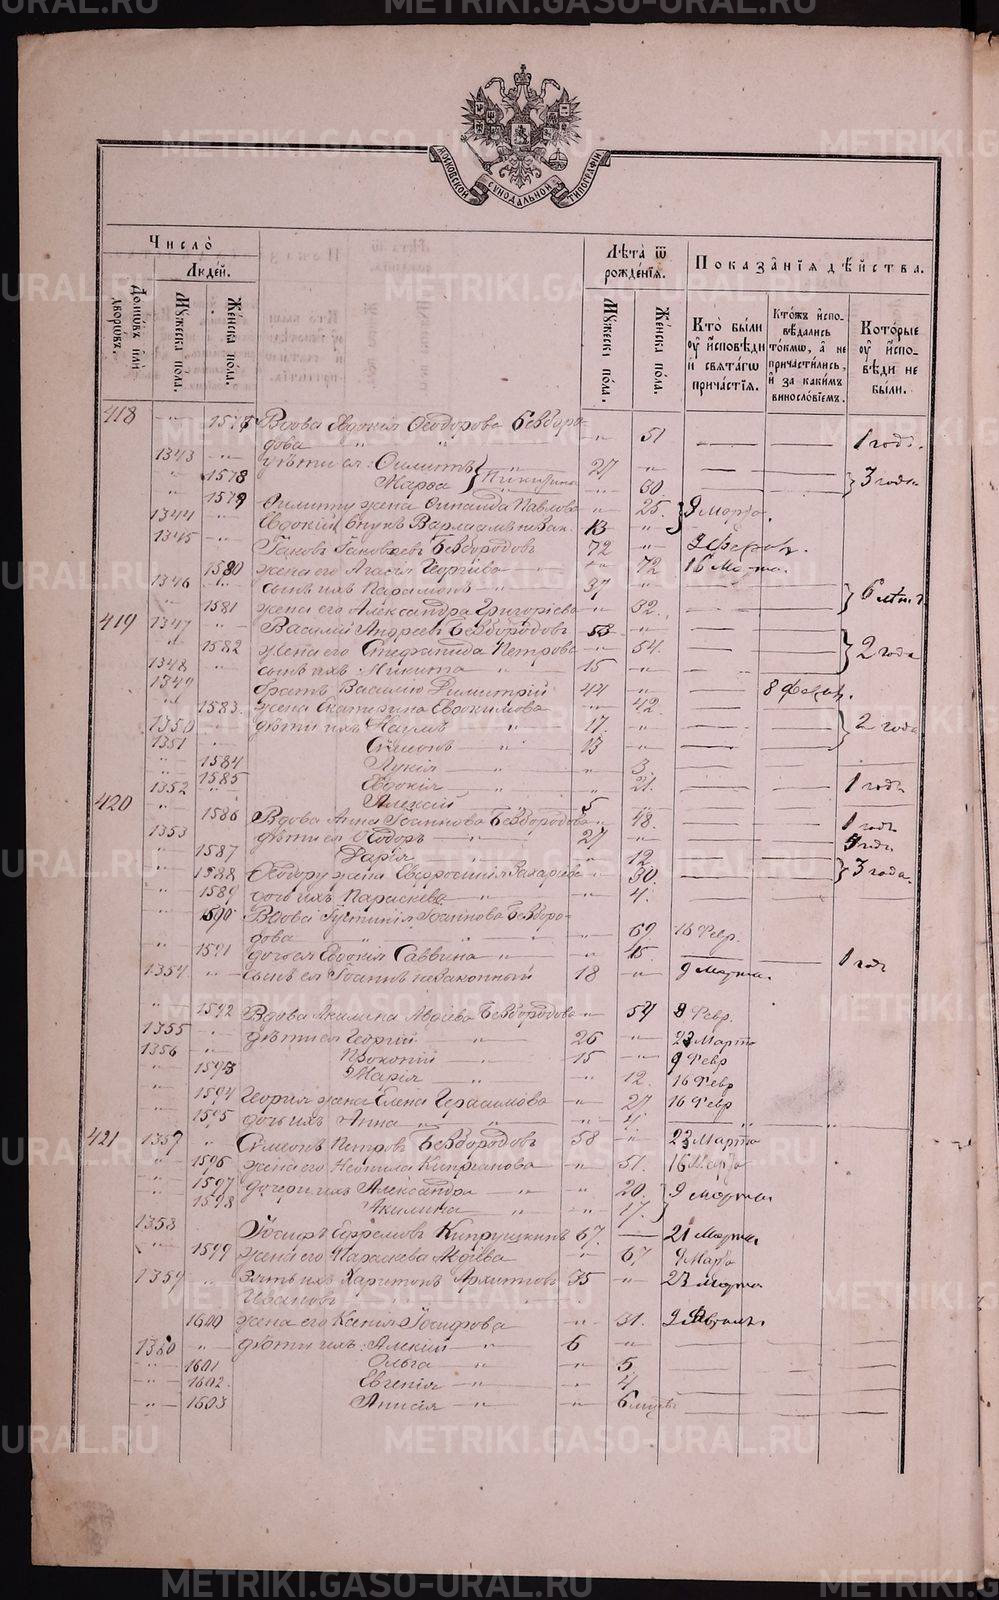 METRIKI.GASO-URAL.RU
МОСКОВСКОЙ СУНОДАЛЬНОЙ ТИПОГРАФІИ
Число̀
Людéй.
Домѡ́въ и҆лѝ дворѡ́въ.
Мꙋ́жеска по́ла.
Же́нска по́ла.
Лѣ́та ѿ рожде́нїѧ.
Мꙋ́жеска по́ла.
Же́нска по́ла.
Показа̑нїѧ дѣ́йства.
Ктѡ̀ бы́ли оу҆ и҆́сповѣди и҆ свѧта́гѡ прича́стїѧ.
Кто́жъ и҆спо-вѣ́дались то́кмѡ, а҆ не причасти́лись, и҆ за каки́мъ винослѡ́вїемъ.
Кото́рые оу҆ и҆́спо-вѣди не бы́ли.
418 -"- 1577 Вдова Евдокія Ѳеодорова Безборо-
дова " 51 1 годъ
1343 -"- дѣти ея: Филиппъ " 27 -"-
" 1578 Марѳа Никитины " 30 3 года
" 1579 Филиппу жена Павлова " 25 9 Марта.
1344 -"- Евдокіи внукъ Варлаамъ 13 "
1345 -"- Іаковъ Іаковлевъ Безбородовъ 72 " 9 Феврал.
1580 жена его Агаѳія Георгіева " 72 16 Марта.
1346 -"- сынъ ихъ Парамонъ " 37 "
" 1581 жена его Александра Григоріева " 32. 6 лѣтъ
419 1347 " Василій Андреевъ Безбородовъ 53 "
" 1582 жена его Стефанида Петрова " 54. 2 года
1348 " сынъ ихъ Никита 15 "
1349 " братъ Василію Димитрій 44 " 8 Феврал.
" 1583. жена Екатерина Евдокимова " 42.
1350 " дѣти ихъ Наумъ " 17. " 2 года
1351 " Симеонъ " 13
" 1584 Лукія " 3
" 1585 Евдокія " 21. 1 годъ
1352 " Алексій 5
420 " 1586 Вдова Анна Іоаннова Безбородова " 48. 1 годъ
1353 дѣти ея Ѳеодоръ " 27 " годъ
" 1587 Дарія " 12
" 1588 Ѳеодору жена Евфросинія Захарова " 30. 3 года.
" 1589 дочь ихъ Параскева " 4.
" 1590 Вдова Іустинія Іоаннова Безборо-
дова " 69 16 Февр.
" 1591 дочь ея Евдокія Саввина " 45. 1 годъ
1354 " сынъ ея Іоаннъ незаконный 18 " 9 Марта.
" 1592 Вдова Акилина Авдіева Безбородова " 54 8 Февр.
1355 " дѣти ея Георгій " 26 " 23 Марта
1356 " Прокопій " 15 " 9 Февр
" 1593 Марія " 12. 16 Февр
" 1594 Георгія жена Елена Герасимова " 27 16 Февр
" 1595 дочь ихъ Анна " 4.
421 1357 " Симеонъ Петровъ Безбородовъ 58 " 23 Марта
" 1596 жена его Неонила Кипріанова " 51. 16 Марта
" 1597 дочери ихъ Александра " 20. 9 Марта
" 1598 Акилина " 17.
1358 Іосифъ Ефремовъ Кипрущкинъ 67. 21 Марта
" 1599 жена его Параскева Авдіева " 67 9 Марта
1359 " Зять ихъ Харитонъ Архиповъ 35 " 23 Марта
Ивановъ
1600 жена его Ксенія Іосифова " 31. 9
1360 " дѣти ихъ: Алексій " 6 "
" 1601 Ольга " 5
" 1602. Евгенія " 4
" 1603 Анисія " 6 мѣсяц